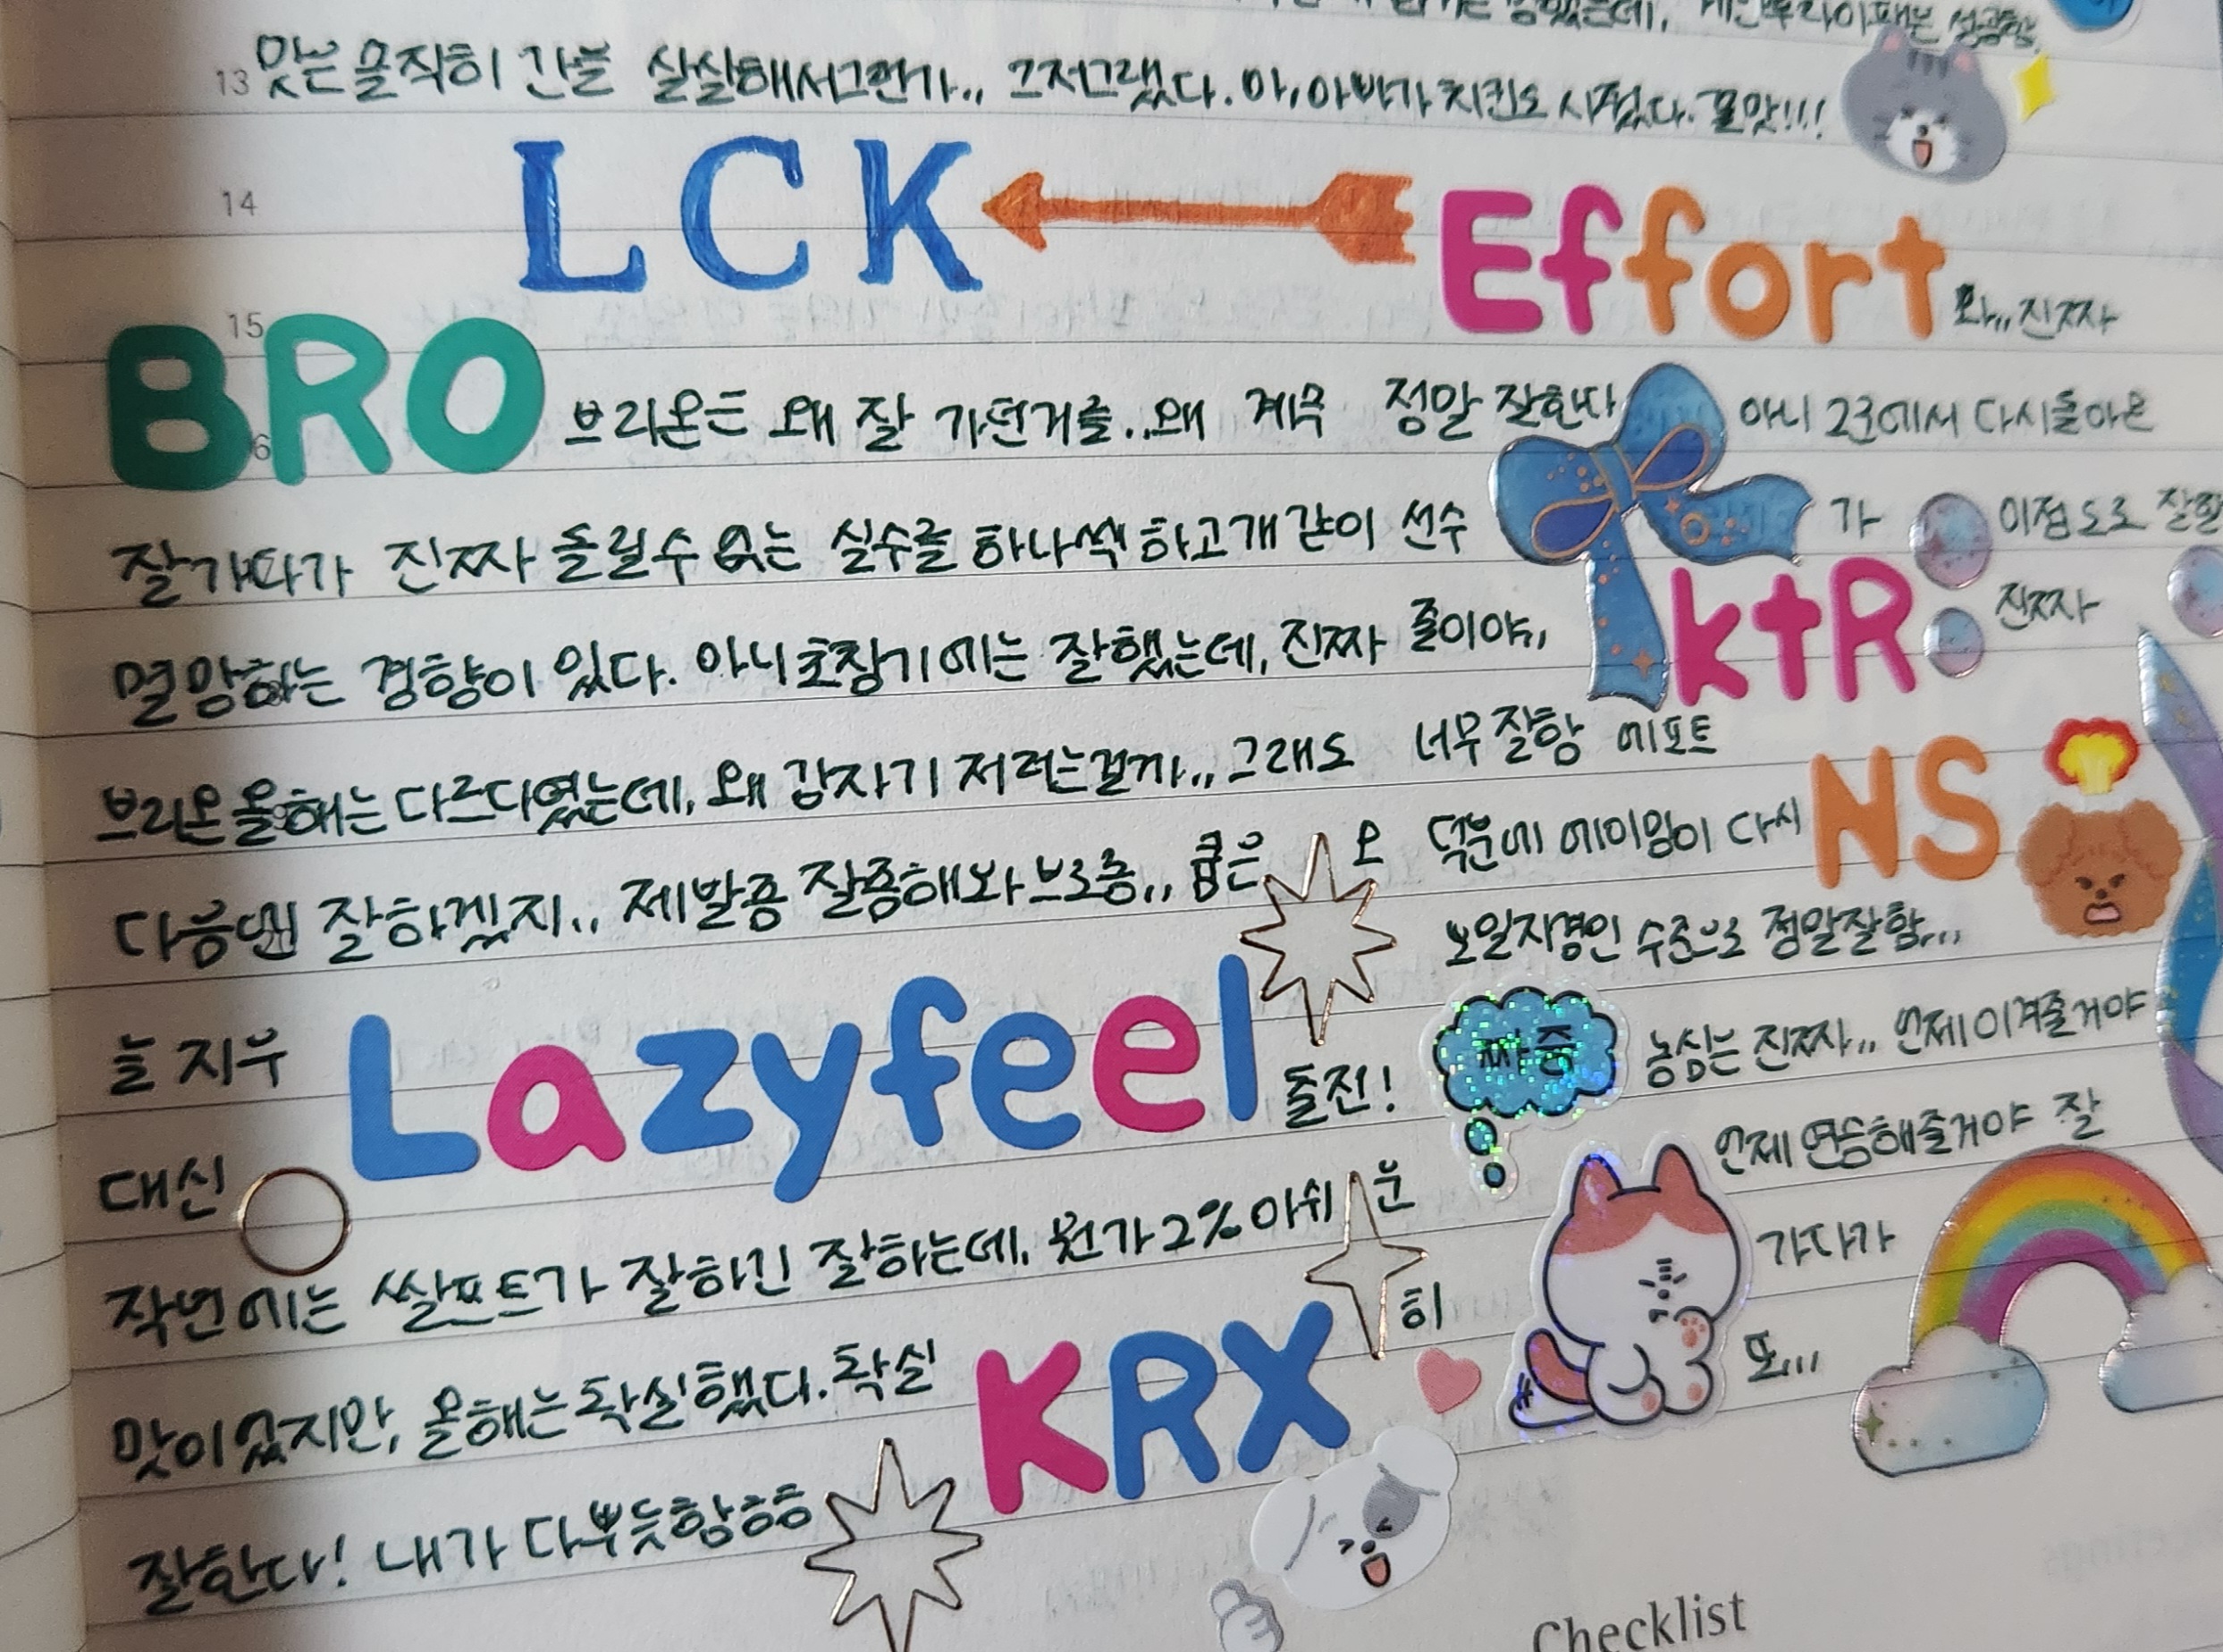 13 맛은 솔직히 간을 살살해서그런가.. 그저그랬다. 아, 아빠가 치킨도 시켰다. 꿀맛!!!
14 LCK Effort 와,, 진짜
15
BRO 브리온은 왜 잘 가던거를..왜 계속
잘가다가 진짜 돌릴수 없는 실수를 하나씩 하고개같이
멸망하는 경향이 있다. 아니 초창기에는 잘했는데, 진짜
브리온 올해는 다르다였는데, 왜 갑자기 저러는걸까.. 그래도
다음엔 잘하겠지.. 제발좀 잘좀해와 브로좀.. 오
늘 지우
대신 Lazyfeel 출전!
작년에는 쌀포트가 잘하긴 잘하는데, 뭔가 2% 아쉬운
맛이 있지만, 올해는 확실했다. 확실히
KRX
잘한다! 내가 다뿌듯함흠흠
정말 잘한다 아니 2군에서 다시돌아온
선수가 이정도로 잘함
줄이야,, ktR 진짜
너무 잘함 에포트
덕분에 에이밍이 다시 NS
보일지경인 수준으로 정말잘함...
짜증 농심은 진짜,, 언제 이겨줄거야
언제 연승해줄거야 잘
가다가
또...
Checklist